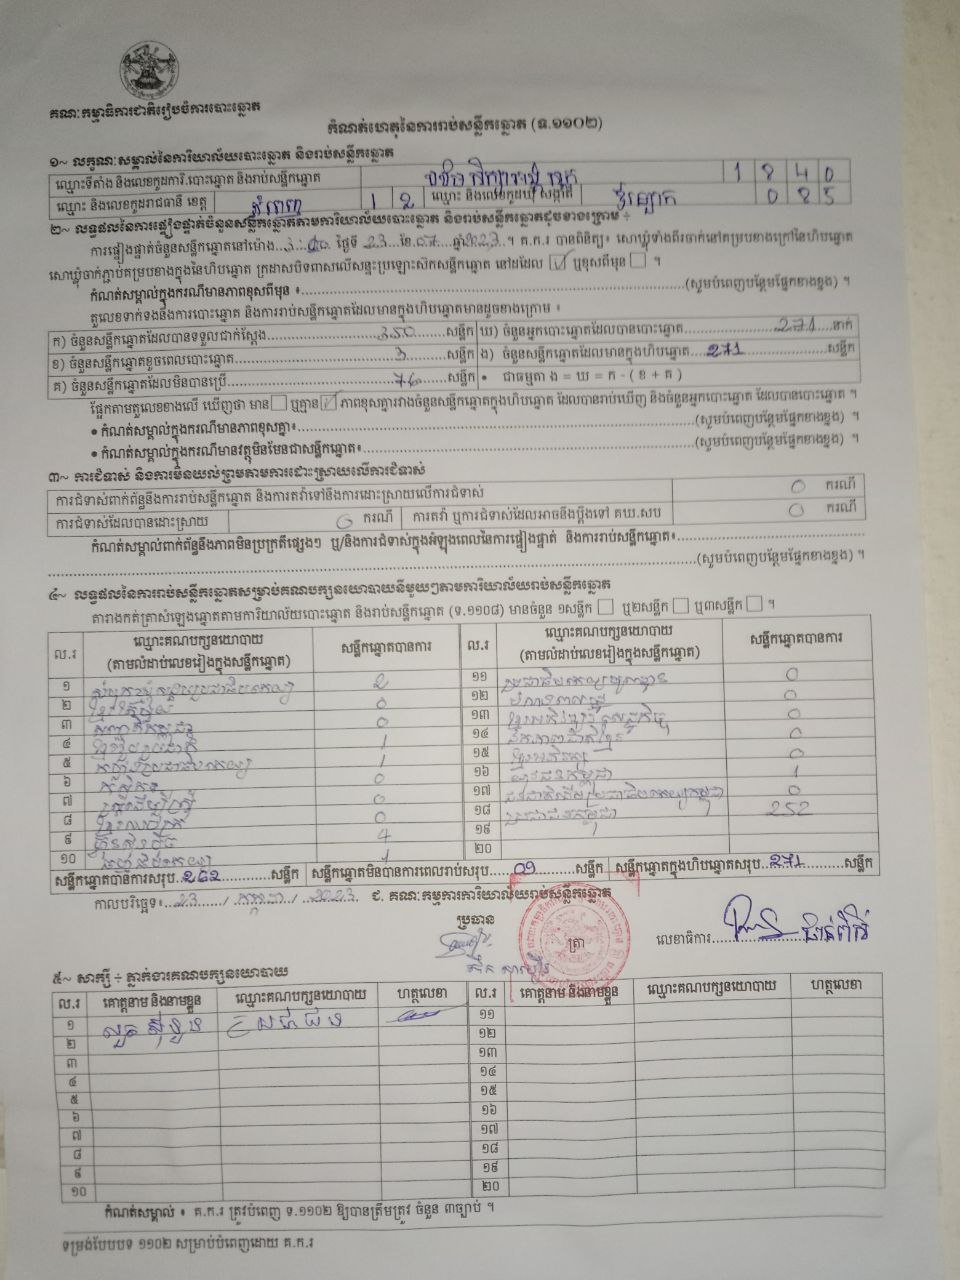 គណៈកម្មាធិការជាតិរៀបចំការបោះឆ្នោត
កំណត់ហេតុនៃការរាប់សន្លឹកឆ្នោត (ទ.១១០២)
១~ លក្ខណៈសម្គាល់នៃការិយាល័យបោះឆ្នោត និងរាប់សន្លឹកឆ្នោត
ឈ្មោះទីតាំង និងលេខកូដការិ.បោះឆ្នោត និងរាប់សន្លឹកឆ្នោត 1840
ឈ្មោះ និងលេខកូដរាជធានី ខេត្ត ភ្នំពេញ 12 ឈ្មោះ និងលេខកូដឃុំ សង្កាត់ 085
២~ លទ្ធផលនៃការផ្ទៀងផ្ទាត់ចំនួនសន្លឹកឆ្នោតតាមការិយាល័យបោះឆ្នោត និងរាប់សន្លឹកឆ្នោតដូចខាងក្រោម ÷
ការផ្ទៀងផ្ទាត់ចំនួនសន្លឹកឆ្នោតនៅម៉ោង ថ្ងៃទី 23 ខែ ឆ្នាំ 2023 ។ គ.ក.រ បានពិនិត្យ៖ សោឃ្លុំទាំងពីរចាក់នៅគម្របខាងក្រៅនៃហិបឆ្នោត
សោឃ្លុំចាក់ភ្ជាប់គម្របខាងក្នុងនៃហិបឆ្នោត ក្រដាសបិទពាសលើសន្ទះប្រឡោះស៊កសន្លឹកឆ្នោត នៅដដែល ☑ ឬខុសពីមុន ☐ ។
កំណត់សម្គាល់ក្នុងករណីមានភាពខុសពីមុន ៖ (សូមបំពេញបន្ថែមផ្នែកខាងខ្នង) ។
តួលេខទាក់ទងនឹងការបោះឆ្នោត និងការរាប់សន្លឹកឆ្នោតដែលមានក្នុងហិបឆ្នោតមានដូចខាងក្រោម ៖
ក) ចំនួនសន្លឹកឆ្នោតដែលបានទទួលជាក់ស្តែង 350 សន្លឹក ឃ) ចំនួនអ្នកបោះឆ្នោតដែលបានបោះឆ្នោត 271 នាក់
ខ) ចំនួនសន្លឹកឆ្នោតខូចពេលបោះឆ្នោត 3 សន្លឹក ង) ចំនួនសន្លឹកឆ្នោតដែលមានក្នុងហិបឆ្នោត 271 សន្លឹក
គ) ចំនួនសន្លឹកឆ្នោតដែលមិនបានប្រើ 76 សន្លឹក • ជាធម្មតា ង = ឃ = ក - ( ខ + គ )
ផ្អែកតាមតួលេខខាងលើ ឃើញថា មាន ☐ ឬគ្មាន ☑ ភាពខុសគ្នារវាងចំនួនសន្លឹកឆ្នោតក្នុងហិបឆ្នោត ដែលបានរាប់ឃើញ និងចំនួនអ្នកបោះឆ្នោត ដែលបានបោះឆ្នោត ។
• កំណត់សម្គាល់ក្នុងករណីមានភាពខុសគ្នា៖ (សូមបំពេញបន្ថែមផ្នែកខាងខ្នង) ។
• កំណត់សម្គាល់ក្នុងករណីមានវត្ថុមិនមែនជាសន្លឹកឆ្នោត៖ (សូមបំពេញបន្ថែមផ្នែកខាងខ្នង) ។
៣~ ការជំទាស់ និងការមិនយល់ព្រមតាមការដោះស្រាយលើការជំទាស់
ការជំទាស់ពាក់ព័ន្ធនឹងការរាប់សន្លឹកឆ្នោត និងការតវ៉ាទៅនឹងការដោះស្រាយលើការជំទាស់ 0 ករណី
ការជំទាស់ដែលបានដោះស្រាយ 0 ករណី ការតវ៉ា ឬការជំទាស់ដែលអាចនឹងប្តឹងទៅ គឃ.សប 0 ករណី
កំណត់សម្គាល់ពាក់ព័ន្ធនឹងភាពមិនប្រក្រតីផ្សេងៗ ឬ/និងការជំទាស់ក្នុងអំឡុងពេលនៃការផ្ទៀងផ្ទាត់ និងការរាប់សន្លឹកឆ្នោត៖
(សូមបំពេញបន្ថែមផ្នែកខាងខ្នង) ។
៤~ លទ្ធផលនៃការរាប់សន្លឹកឆ្នោតសម្រាប់គណបក្សនយោបាយនីមួយៗតាមការិយាល័យរាប់សន្លឹកឆ្នោត
តារាងកត់ត្រាសំឡេងឆ្នោតតាមការិយាល័យបោះឆ្នោត និងរាប់សន្លឹកឆ្នោត (ទ.១១០៨) មានចំនួន ១សន្លឹក ☐ ឬ២សន្លឹក ☐ ឬ៣សន្លឹក ☐ ។
ល.រ ឈ្មោះគណបក្សនយោបាយ (តាមលំដាប់លេខរៀងក្នុងសន្លឹកឆ្នោត) សន្លឹកឆ្នោតបានការ ល.រ ឈ្មោះគណបក្សនយោបាយ (តាមលំដាប់លេខរៀងក្នុងសន្លឹកឆ្នោត) សន្លឹកឆ្នោតបានការ
១ 2 ១១ 0
២ 0 ១២ 0
៣ 0 ១៣ 0
៤ 1 ១៤ 0
៥ 1 ១៥ 0
៦ 0 ១៦ 1
៧ 0 ១៧ 0
៨ 0 ១៨ ប្រជាជនកម្ពុជា 252
៩ 4 ១៩
១០ 1 ២០
សន្លឹកឆ្នោតបានការសរុប 262 សន្លឹក សន្លឹកឆ្នោតមិនបានការពេលរាប់សរុប 09 សន្លឹក សន្លឹកឆ្នោតក្នុងហិបឆ្នោតសរុប 271 សន្លឹក
កាលបរិច្ឆេទ៖ 23 / កក្កដា / 2023 ជ. គណៈកម្មការការិយាល័យរាប់សន្លឹកឆ្នោត
ប្រធាន
ត្រា លេខាធិការ
៥~ សាក្សី ÷ ភ្នាក់ងារគណបក្សនយោបាយ
ល.រ គោត្តនាម និងនាមខ្លួន ឈ្មោះគណបក្សនយោបាយ ហត្ថលេខា ល.រ គោត្តនាម និងនាមខ្លួន ឈ្មោះគណបក្សនយោបាយ ហត្ថលេខា
១ ១១
២ ១២
៣ ១៣
៤ ១៤
៥ ១៥
៦ ១៦
៧ ១៧
៨ ១៨
៩ ១៩
១០ ២០
កំណត់សម្គាល់ ៖ គ.ក.រ ត្រូវបំពេញ ទ.១១០២ ឱ្យបានត្រឹមត្រូវ ចំនួន ៣ច្បាប់ ។
ទម្រង់បែបបទ ១១០២ សម្រាប់បំពេញដោយ គ.ក.រ